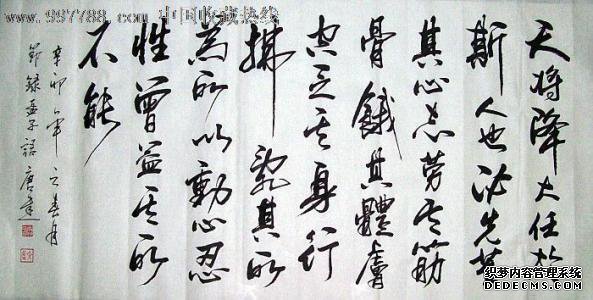 www.997788.com 中国收藏热线
天將降大任於
斯人也必先苦
其心志勞其筋
骨餓其體膚
空乏其身行
拂亂其所
為所以動心忍
性曾益其所
不能
辛卯年之春月
節錄孟子語 唐
织梦内容管理系统
DEDECMS.COM